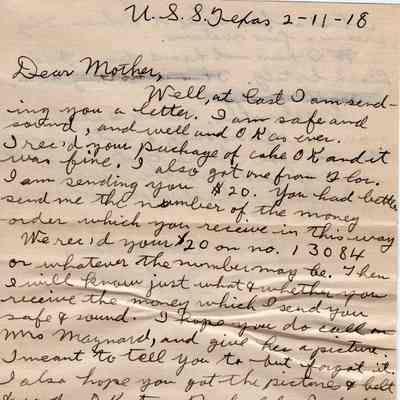 U.S.S. Texas 2-11-18
Dear Mother,
Well, at last I am send-
ing you a letter. I am safe and
sound, and well and OK as ever.
I rec'd your package of cake OK and it
was fine. I also got one from Flor.
I am sending you $20. You had better
send me the number of the money
order which you receive in this way
We rec'd your $20 on no. 13084
or whatever the number may be. Then
I will know just what & whether you
receive the money which I send you
safe & sound. I hope you do call on
Mrs Maynard, and give her a picture.
I meant to tell you to but forgot it.
I also hope you got the pictures & belt